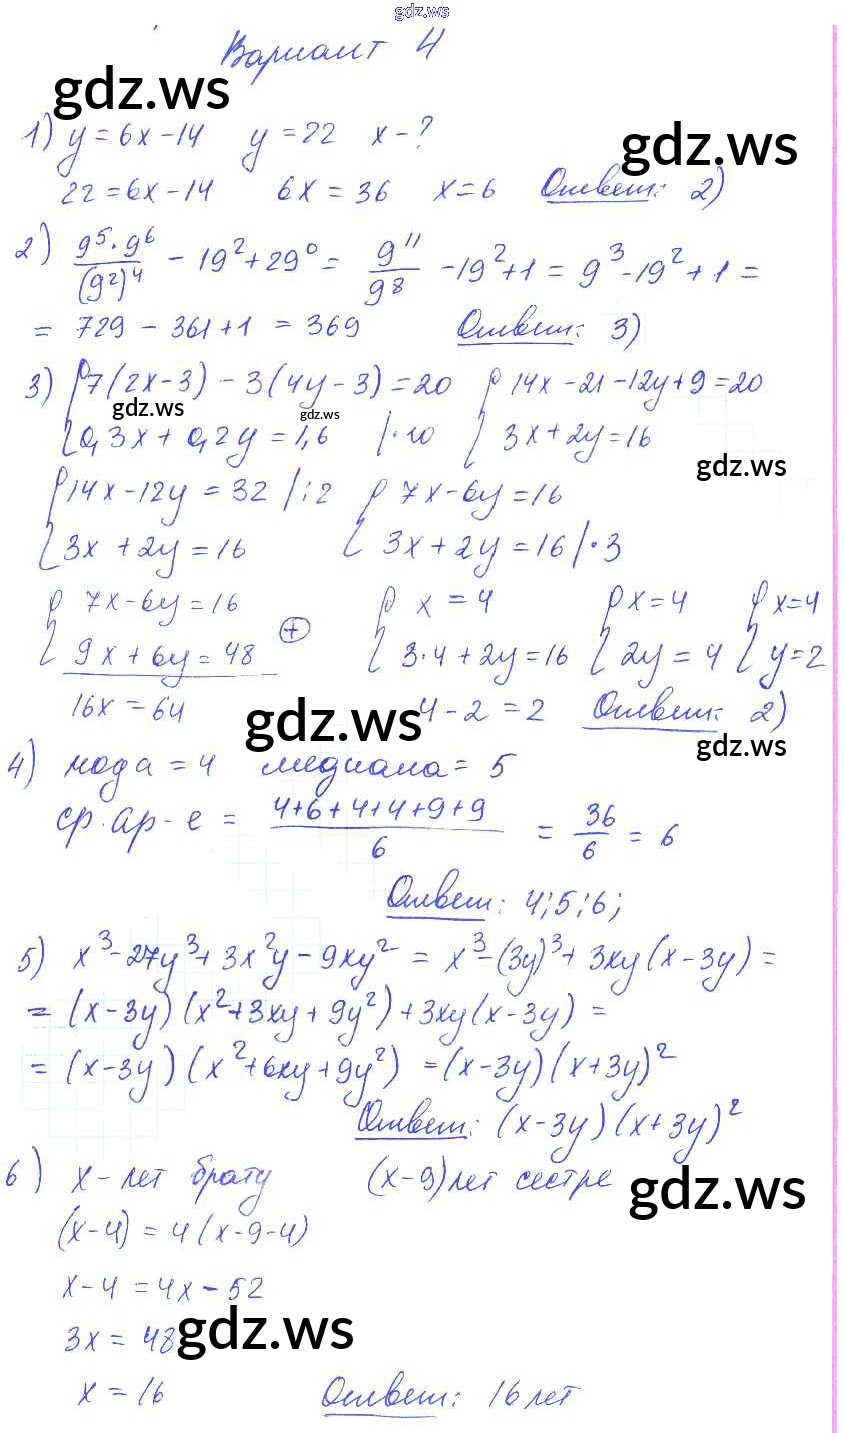 gdz.ws
Вариант 4
gdz.ws
1) y = 6x - 14 y = 22 x - ?
gdz.ws
22 = 6x - 14 6x = 36 x = 6 Ответ: 2)
2) 9⁵·9⁶/(9²)⁴ - 19² + 29⁰ = 9¹¹/9⁸ - 19² + 1 = 9³ - 19² + 1 =
= 729 - 361 + 1 = 369 Ответ: 3)
3) { 7(2x - 3) - 3(4y - 3) = 20 { 14x - 21 - 12y + 9 = 20
gdz.ws gdz.ws
0,3x + 0,2y = 1,6 |·10 3x + 2y = 16
gdz.ws
{ 14x - 12y = 32 |:2 { 7x - 6y = 16
3x + 2y = 16 3x + 2y = 16 |·3
{ 7x - 6y = 16 { x = 4 { x = 4 { x = 4
9x + 6y = 48 (+) 3·4 + 2y = 16 2y = 4 y = 2
16x = 64 4 - 2 = 2 Ответ: 2)
gdz.ws
gdz.ws
4) мода = 4 медиана = 5
ср. ар-е = 4+6+4+4+9+9/6 = 36/6 = 6
Ответ: 4; 5; 6;
5) x³ - 27y³ + 3x²y - 9xy² = x³ - (3y)³ + 3xy(x - 3y) =
= (x - 3y)(x² + 3xy + 9y²) + 3xy(x - 3y) =
= (x - 3y)(x² + 6xy + 9y²) = (x - 3y)(x + 3y)²
Ответ: (x - 3y)(x + 3y)²
6) x - лет брату (x - 9) лет сестре
gdz.ws
(x - 4) = 4(x - 9 - 4)
x - 4 = 4x - 52
3x = 48
gdz.ws
x = 16 Ответ: 16 лет